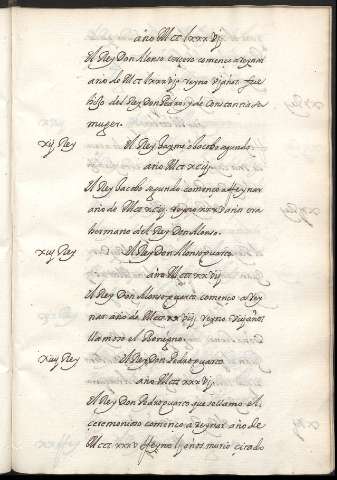 año MCC lxxx vij
El Rey Don Alonso tercero començo a reynar
año de MCC lxxx vij reyno vj años fue
hijo del Rey Don Pedro y de Constancia su
muger.
xij Rey El Rey Jayme o Jacobo segundo
año MCC xcij
El Rey Jacobo segundo començo a Reynar
año de MCC xcij reyno xxx años era
hermano del Rey Don Alonso.
xiij Rey El Rey Don Alonso quarto
año MCCC xx viij
El Rey Don Alonso quarto començo a rey
nar año de MCCC xx viij reyno años
llamose el Benegno
xiiij Rey El Rey Don Pedro quarto
año MCCC xxx vj
El Rey Don Pedro quarto que se llamo el
ceremonioso començo a reynar año de
MCCC xxx v Reyno lj años murio